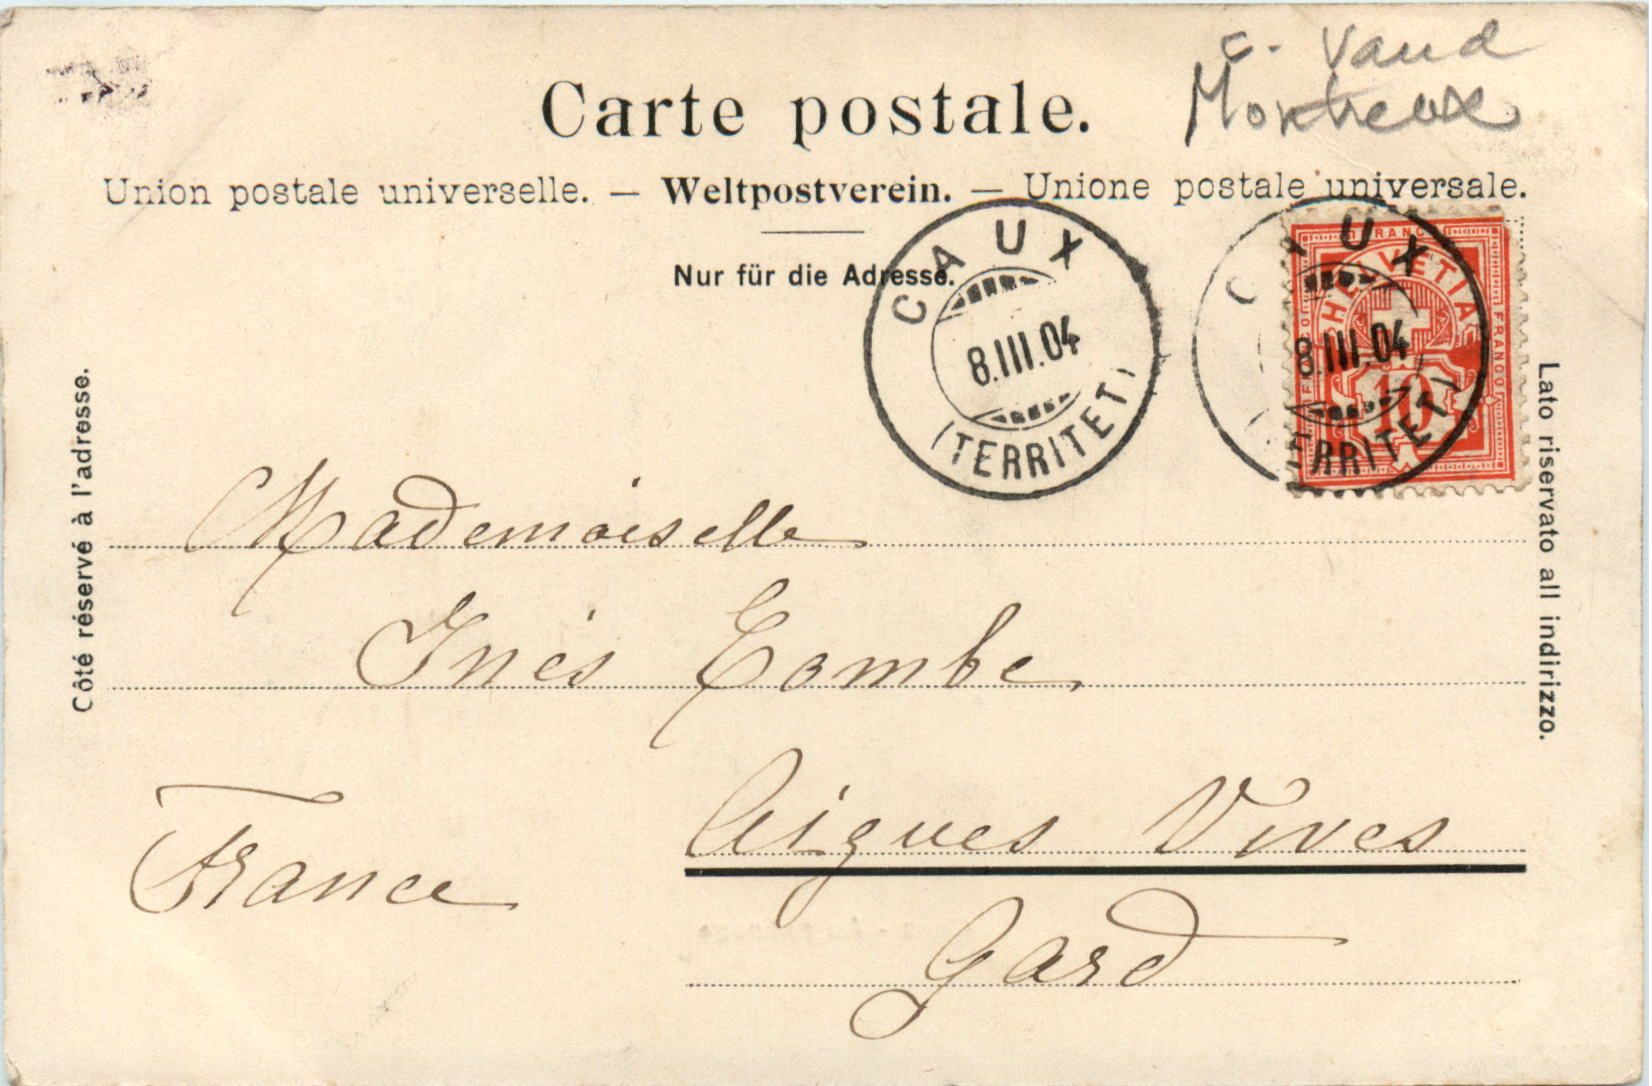 c. Vaud
Montreux
Carte postale.
Union postale universelle. — Weltpostverein. — Unione postale universale.
Nur für die Adresse.
CAUX
8.III.04
(TERRITET)
CAUX
8.III.04
(TERRITET)
FRANCO
HELVETIA
FRANCO
FRANCO
10
Côté réservé à l'adresse.
Lato riservato all indirizzo.
Mademoiselle
Inès Combe
Aigues Vives
France
Gard